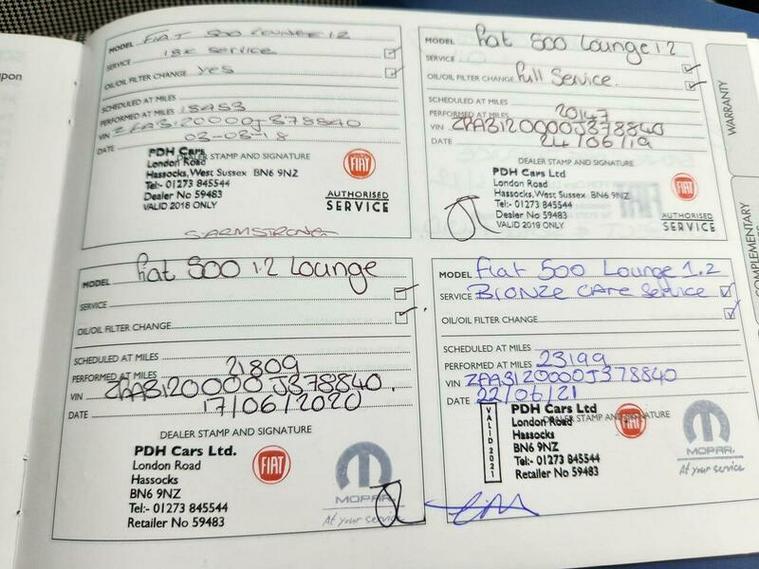 upon
MODEL FIAT 500 LOUNGE 1.2
SERVICE 18K Service
OIL/OIL FILTER CHANGE yes
SCHEDULED AT MILES
PERFORMED AT MILES 18453
VIN ZFA3120000J378840
DATE 03-03-18
DEALER STAMP AND SIGNATURE
PDH Cars
London Road
Hassocks, West Sussex BN6 9NZ
Tel:- 01273 845544
Dealer No 59483
VALID 2018 ONLY
FIAT
AUTHORISED
SERVICE
S.ARMSTRONG
MODEL Fiat 500 Lounge 1.2
SERVICE
OIL/OIL FILTER CHANGE Full Service.
SCHEDULED AT MILES
PERFORMED AT MILES 20147
VIN ZFA3120000J378840
DATE 24/06/19
DEALER STAMP AND SIGNATURE
PDH Cars Ltd
London Road
Hassocks, West Sussex BN6 9NZ
Tel:- 01273 845544
Dealer No 59483
VALID 2019 ONLY
FIAT
AUTHORISED
SERVICE
MODEL Fiat 500 1.2 Lounge
SERVICE
OIL/OIL FILTER CHANGE
SCHEDULED AT MILES
PERFORMED AT MILES 21809
VIN ZFA3120000J378840.
DATE 17/06/2020
DEALER STAMP AND SIGNATURE
PDH Cars Ltd.
London Road
Hassocks
BN6 9NZ
Tel:- 01273 845544
Retailer No 59483
FIAT
MOPAR
At your service
MODEL Fiat 500 Lounge 1.2
SERVICE BRONZE CARE Service
OIL/OIL FILTER CHANGE
SCHEDULED AT MILES
PERFORMED AT MILES 23199
VIN ZFA3120000J378840
DATE 22/06/21
DEALER STAMP AND SIGNATURE
VALID 2021
PDH Cars Ltd
London Road
Hassocks
BN6 9NZ
Tel:- 01273 845544
Retailer No 59483
FIAT
MOPAR
At your service
WARRANTY
COMPLEMENTARY